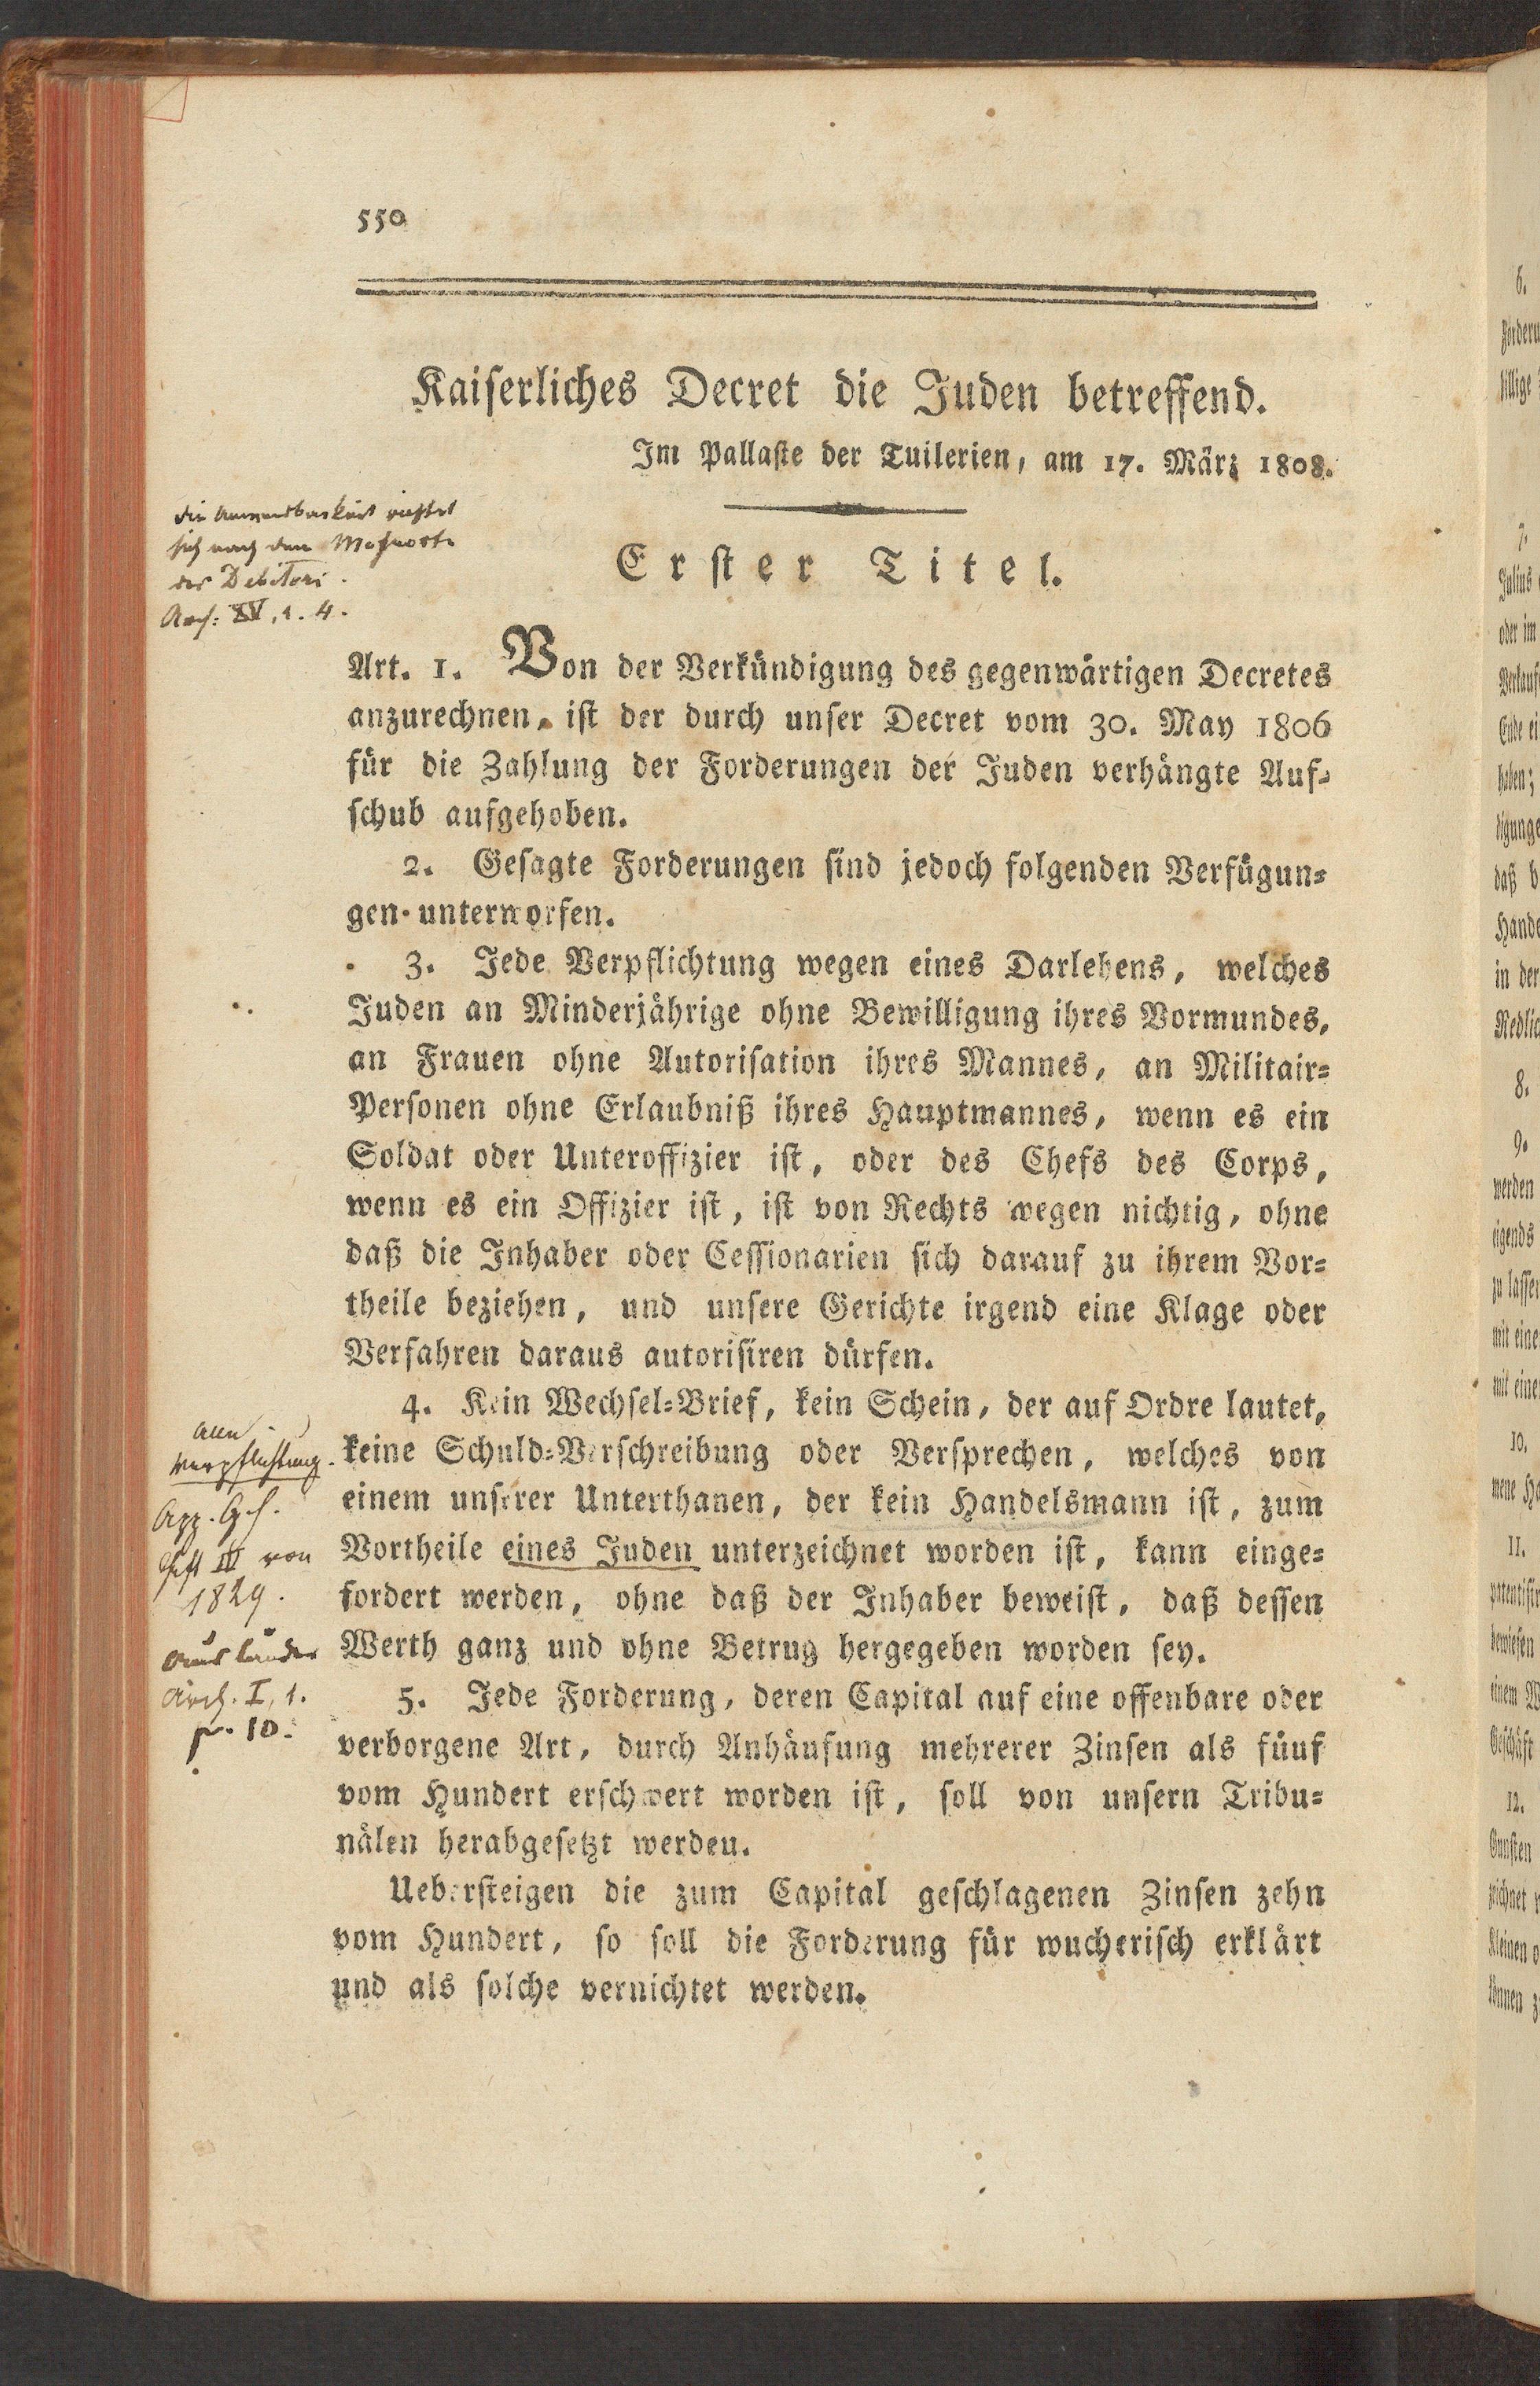 550
Kaiserliches Decret die Juden betreffend.
Im Pallaste der Tuilerien, am 17. März 1808.
die Anwendbarkeit richtet
sich nach dem Wohnorte
des Debitors.
Arch: XV, 1. 4.
Erster Titel.
Art. 1. Von der Verkündigung des gegenwärtigen Decretes
anzurechnen, ist der durch unser Decret vom 30. May 1806
für die Zahlung der Forderungen der Juden verhängte Auf-
schub aufgehoben.
2. Gesagte Forderungen sind jedoch folgenden Verfügun-
gen unterworfen.
3. Jede Verpflichtung wegen eines Darlehens, welches
Juden an Minderjährige ohne Bewilligung ihres Vormundes,
an Frauen ohne Autorisation ihres Mannes, an Militair-
Personen ohne Erlaubniß ihres Hauptmannes, wenn es ein
Soldat oder Unteroffizier ist, oder des Chefs des Corps,
wenn es ein Offizier ist, ist von Rechts wegen nichtig, ohne
daß die Inhaber oder Cessionarien sich darauf zu ihrem Vor-
theile beziehen, und unsere Gerichte irgend eine Klage oder
Verfahren daraus autorisiren dürfen.
4. Kein Wechsel-Brief, kein Schein, der auf Ordre lautet,
keine Schuld-Verschreibung oder Versprechen, welches von
einem unserer Unterthanen, der kein Handelsmann ist, zum
Vortheile eines Juden unterzeichnet worden ist, kann einge-
fordert werden, ohne daß der Inhaber beweist, daß dessen
Werth ganz und ohne Betrug hergegeben worden sey.
verpflichtung.
App. G.h.
Heft IV von
1829.
Ausländer
Arch. I, 1.
p. 10.
5. Jede Forderung, deren Capital auf eine offenbare oder
verborgene Art, durch Anhäufung mehrerer Zinsen als füuf
vom Hundert erschwert worden ist, soll von unsern Tribu-
nälen herabgesetzt werden.
Uebersteigen die zum Capital geschlagenen Zinsen zehn
vom Hundert, so soll die Forderung für wucherisch erklärt
und als solche vernichtet werden.
6.
7.
Julius
oder im
haben;
daß
in der
8.
9.
werden
zu lassen
mit eine
mit eine
10.
11.
einem
12.
Gunsten